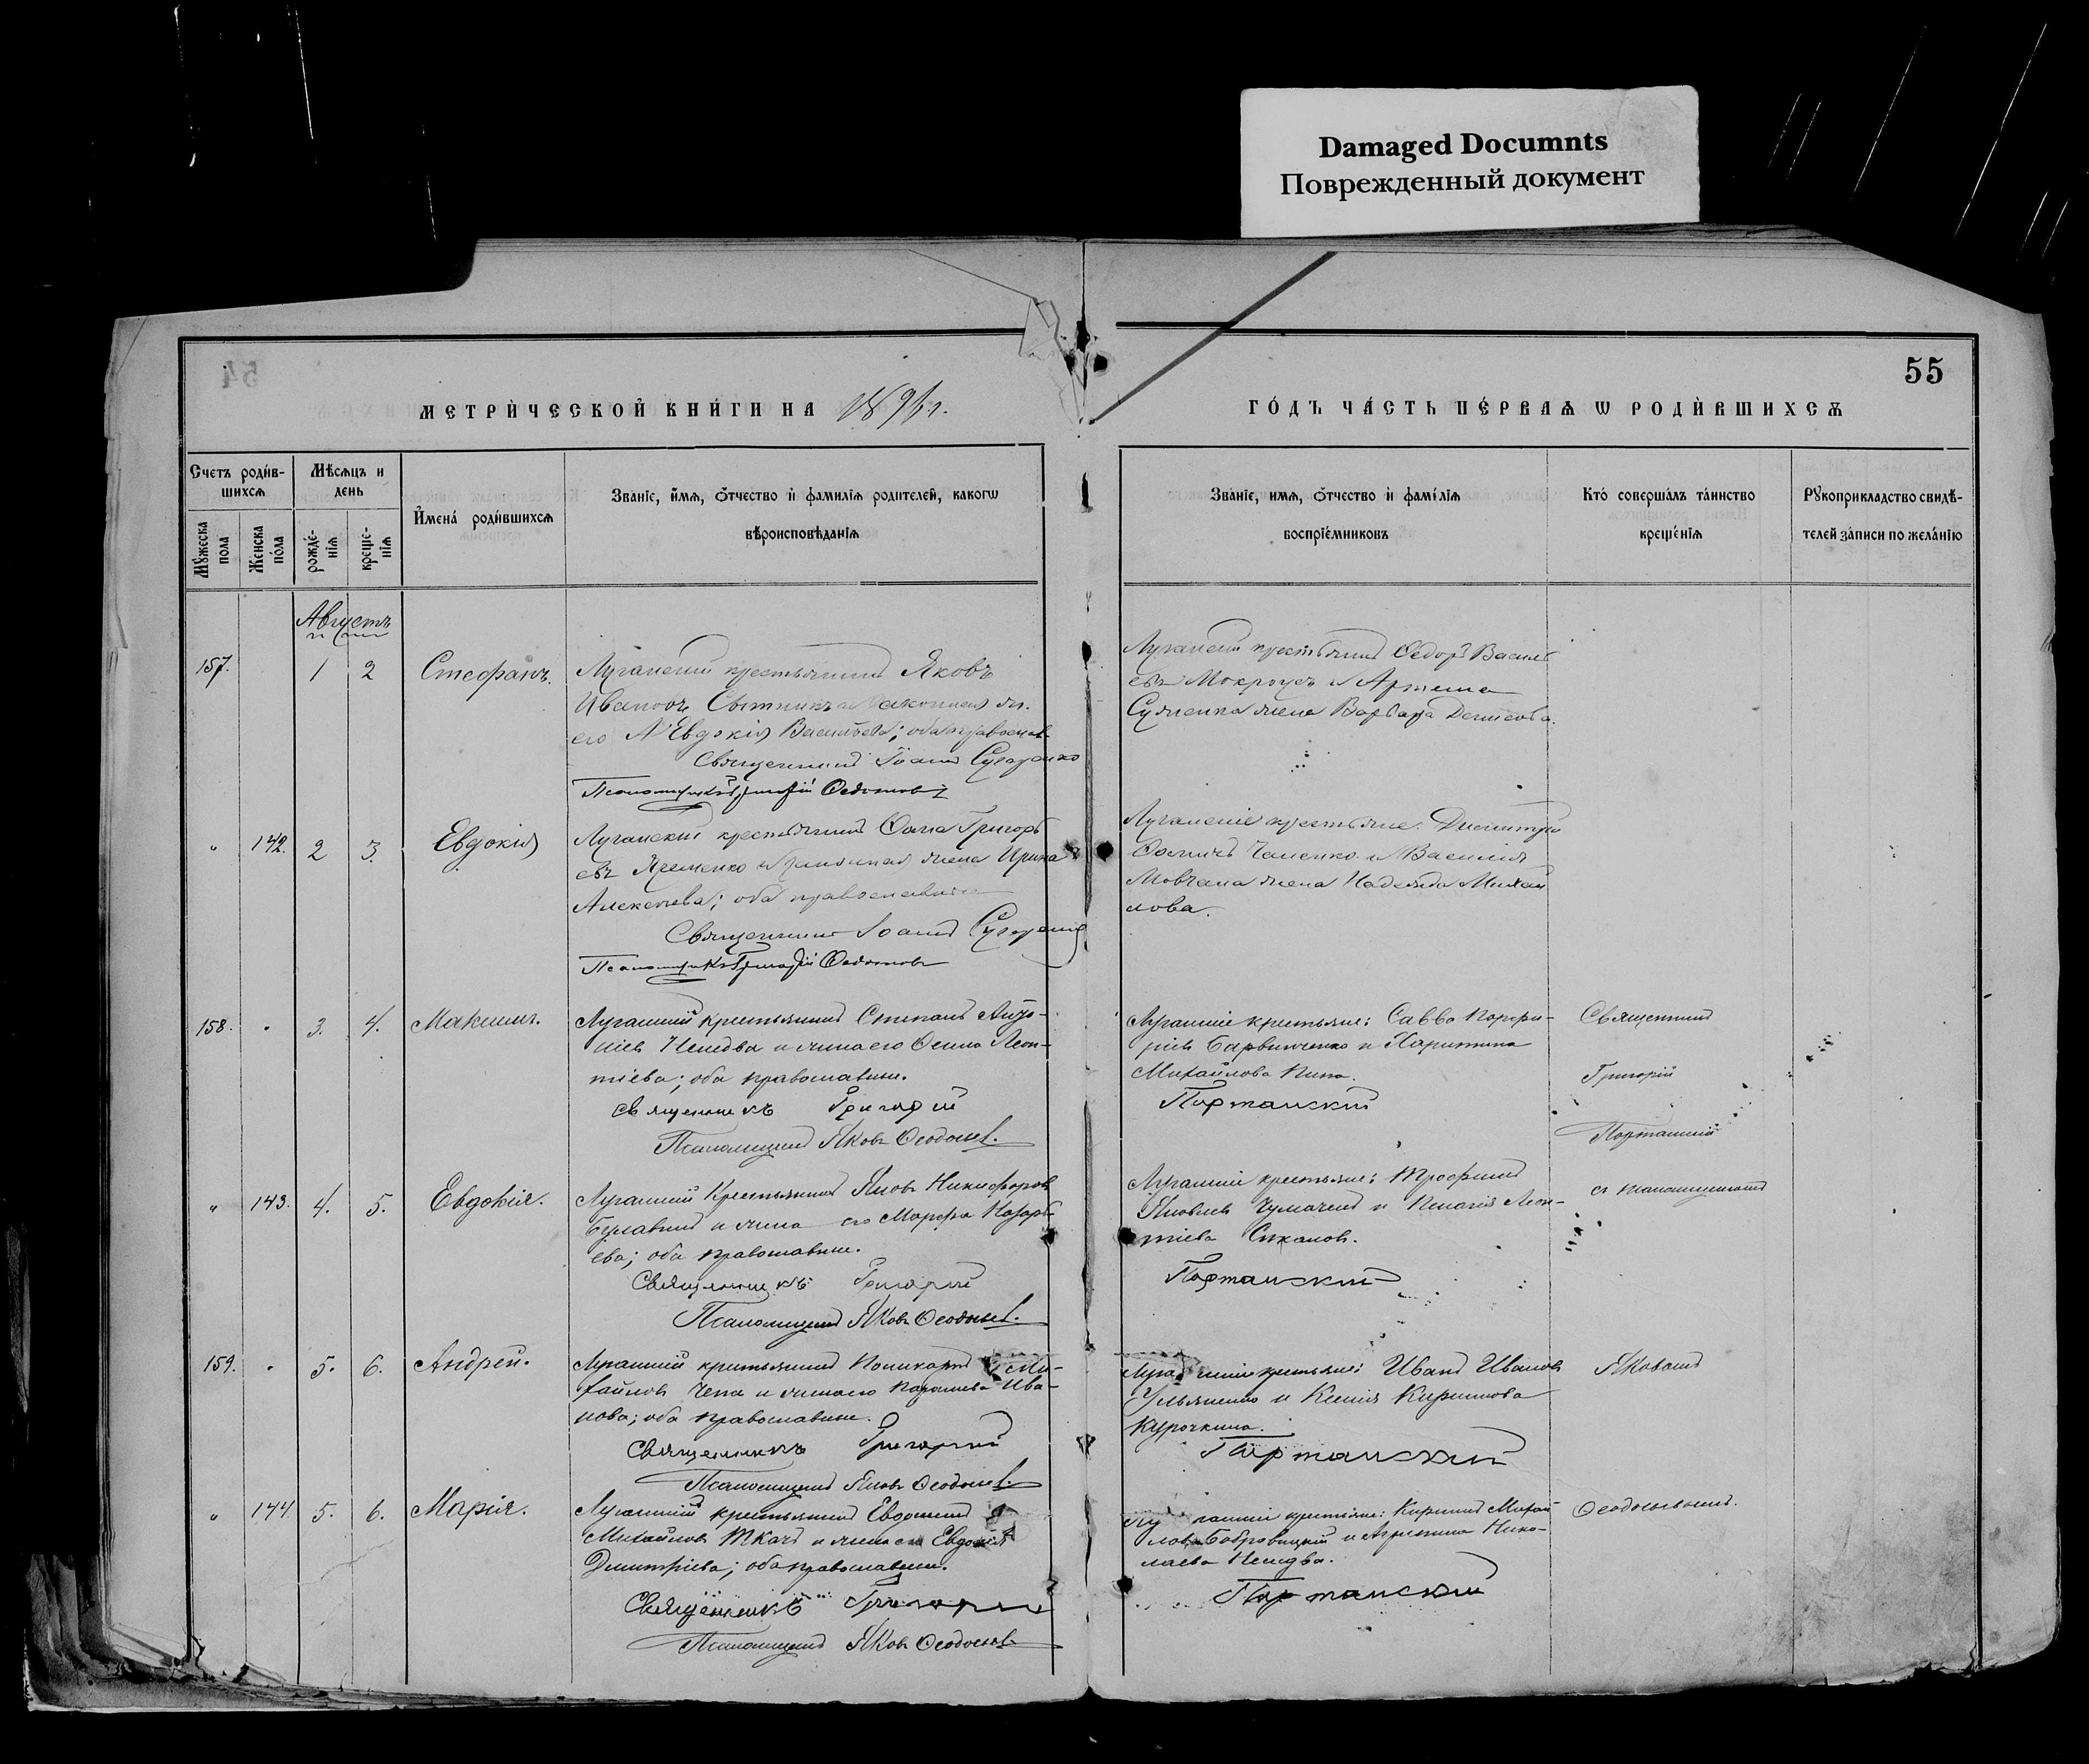 Damaged Documnts
Поврежденный документ
55
МЕТРИ́ЧЕСКОЙ КНИ́ГИ НА 1896 г.
ГО́ДЪ ЧА́СТЬ ПЕ́РВАѦ Ѡ РОДИ́ВШИХСѦ
Счетъ роди́в-
шихсѧ
Мꙋ́жеска пола
Же́нска по́ла
Мѣсѧцъ и
день
рожде́-
нїѧ
креще-
нїѧ
И҆мена́ роди́вшихсѧ
Зва́нїе, и҆́мѧ, ѻ҆́тчество и҆ фами́лїѧ родителей, какогѡ
вѣроисповѣданїѧ
Зва́нїе, имѧ, ѻ҆́тчество и҆ фамі́лїѧ
воспрїе́мниковъ
Кто́ соверша́лъ та́инство
креще́нїѧ
Рꙋкоприкладство свидѣ́-
телей за́писи по жела́нїю
Августъ
157. 1 2 Стефанъ.
Луганскій крестьянинъ Яковъ
Ивановъ Сытникъ и законная ж.
его Евдокія Васильева; оба православ.
Священникъ Іоаннъ
Псаломщикъ Григорій
Луганскій крестьянинъ Ѳедоръ Василь
евъ Мокроусъ и Артема
жена Варвара Денисова.
" 142. 2 3. Евдокія
Луганскій крестьянинъ Ѳома Григорь
евъ Яременко и законная жена Ирина
Алексеева; оба православные
Священникъ Іоаннъ
Псаломщикъ Григорій
Луганскіе крестьяне: Димитрій
и Василія
Мовчана жена Надежда Михай
лова.
158. " 3. 4. Максимъ.
Луганскій крестьянинъ Степанъ
и жена его Леон-
тіева; оба православные.
Священникъ Григорій
Псаломщикъ Яковъ Ѳеодосьев.
Луганскіе крестьяне: Савва Порфи-
ріевъ Барвинченко и Харитина
Михайлова
Портанскій
Священникъ
Григорій
Портанскій
" 143. 4. 5. Евдокія.
Луганскій крестьянинъ Яковъ Никифоровъ
и жена его Марфа Назарь-
ева; оба православные.
Священникъ Григорій
Псаломщикъ Яковъ Ѳеодосьев.
Луганскіе крестьяне: Трофимъ
Яковлевъ и Пелагія Леон-
тіева
Портанскій
съ псаломщикомъ
159. " 5. 6. Андрей.
Луганскій крестьянинъ Поликарпъ Ми-
хайловъ Чепа и жена его Ива-
нова; оба православные.
Священникъ Григорій
Псаломщикъ Яковъ Ѳеодосьев.
крестьяне: Иванъ Ивановъ
Ульяненко и Ксенія Кириллова
Курочкина.
Портанскій
Яковомъ
" 144. 5. 6. Марія.
Луганскій крестьянинъ Евдокимъ
Михайловъ Ткачъ и жена его Евдокія
Димитріева; оба православные.
Священникъ Григорій
Псаломщикъ Яковъ Ѳеодосьев
крестьяне: Кириллъ Михай
ловъ Бобровицкій и Агрипина Нико-
лаева
Портанскій
Ѳеодосьевымъ.